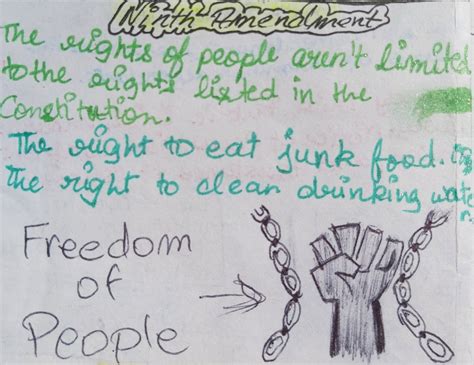 Ninth Amendment
The rights of people aren't limited
to the rights listed in the
Constitution.
The right to eat junk food.
The right to clean drinking water
Freedom
of
People